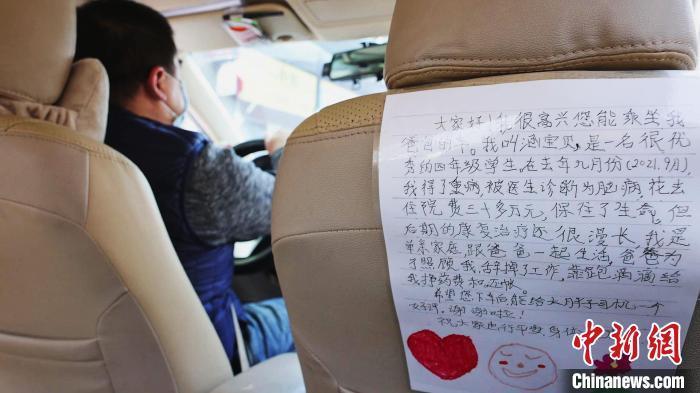 大家好！我很高兴您能乘坐我
爸爸的车。我叫涵宝贝，是一名很优
秀的四年级学生，在去年九月份(2021.9月)，
我得了重病被医生诊断为脑病，花去
住院费三十多万元，保住了生命。但
后期的康复治疗还很漫长，我是
单亲家庭，跟爸爸一起生活，爸爸为
了照顾我，辞掉了工作，靠跑滴滴给
我挣药费和还帐。
希望您下车时能给大胖子司机一个
好评。谢谢啦！
祝大家出行平安，身体
中新网
Chinanews.com